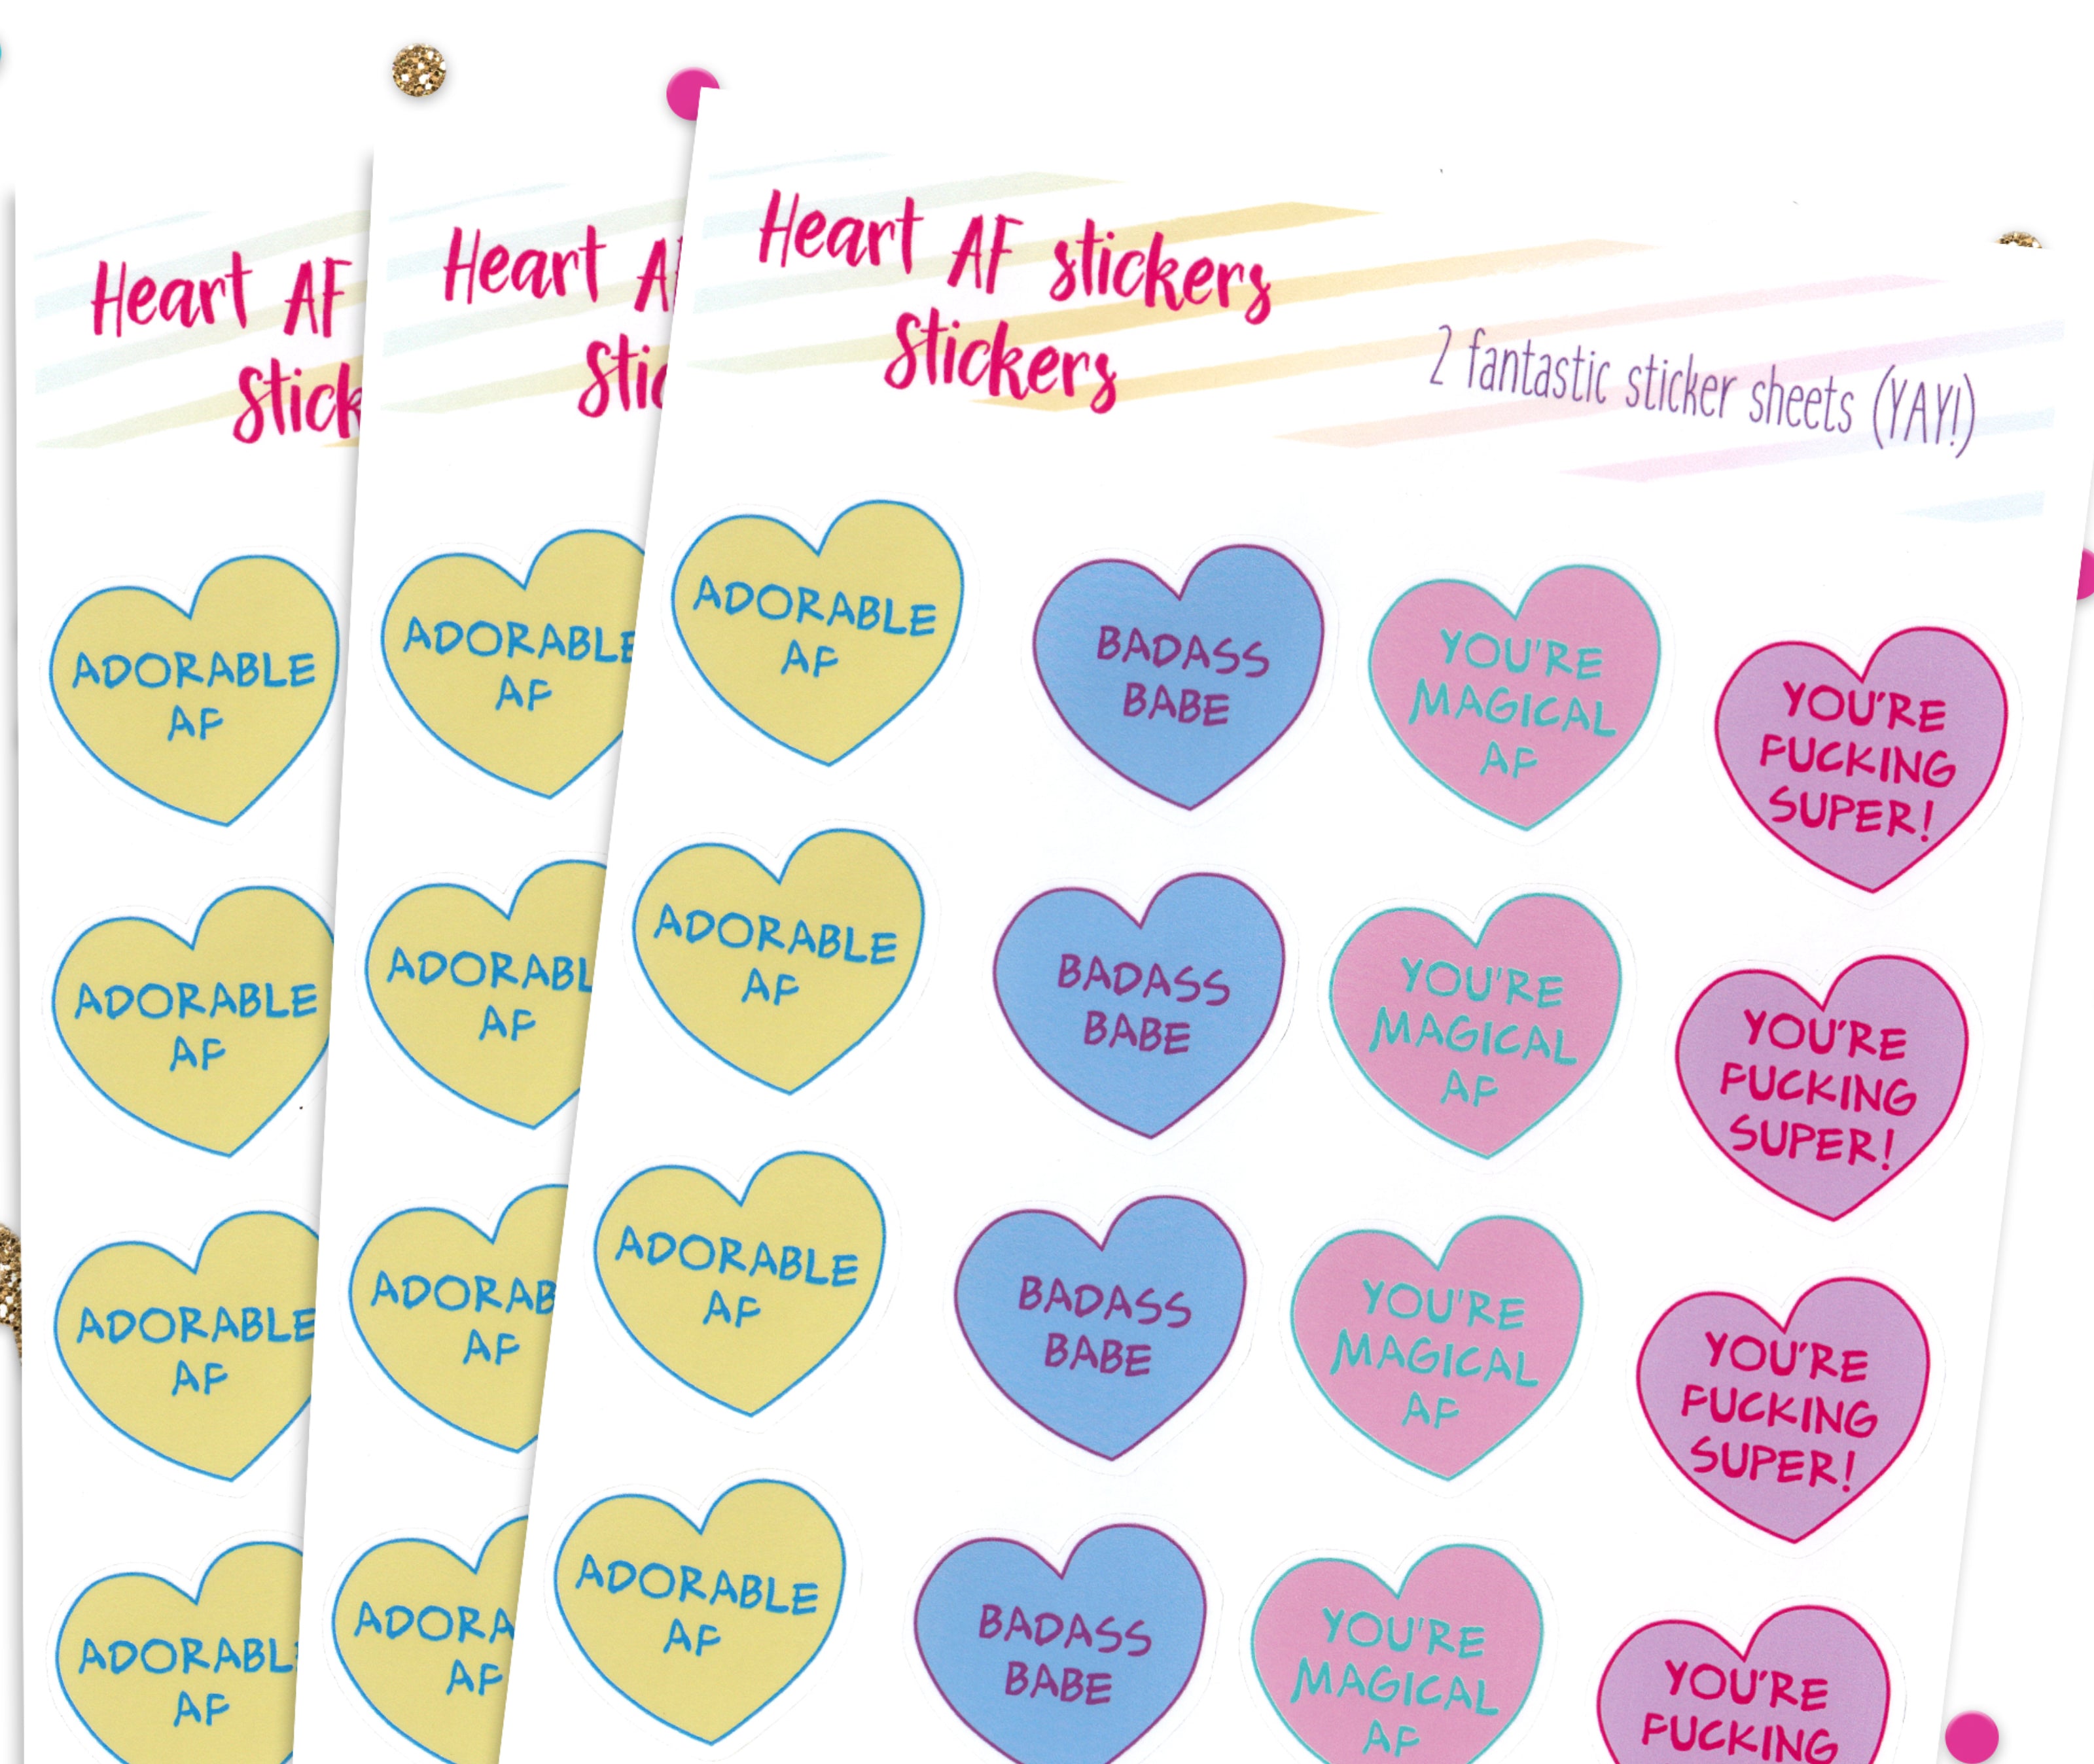 Heart AF
Stick
ADORABLE
AF
ADORABLE
AF
ADORABLE
AF
ADORABL
AF
Heart A
Stic
ADORABLE
AF
ADORABL
AF
ADORAB
AF
ADORA
AF
Heart AF stickers
Stickers
2 fantastic sticker sheets (YAY!)
ADORABLE
AF
BADASS
BABE
YOU'RE
MAGICAL
AF
YOU'RE
FUCKING
SUPER!
ADORABLE
AF
BADASS
BABE
YOU'RE
MAGICAL
AF
YOU'RE
FUCKING
SUPER!
ADORABLE
AF
BADASS
BABE
YOU'RE
MAGICAL
AF
YOU'RE
FUCKING
SUPER!
ADORABLE
AF
BADASS
BABE
YOU'RE
MAGICAL
AF
YOU'RE
FUCKING